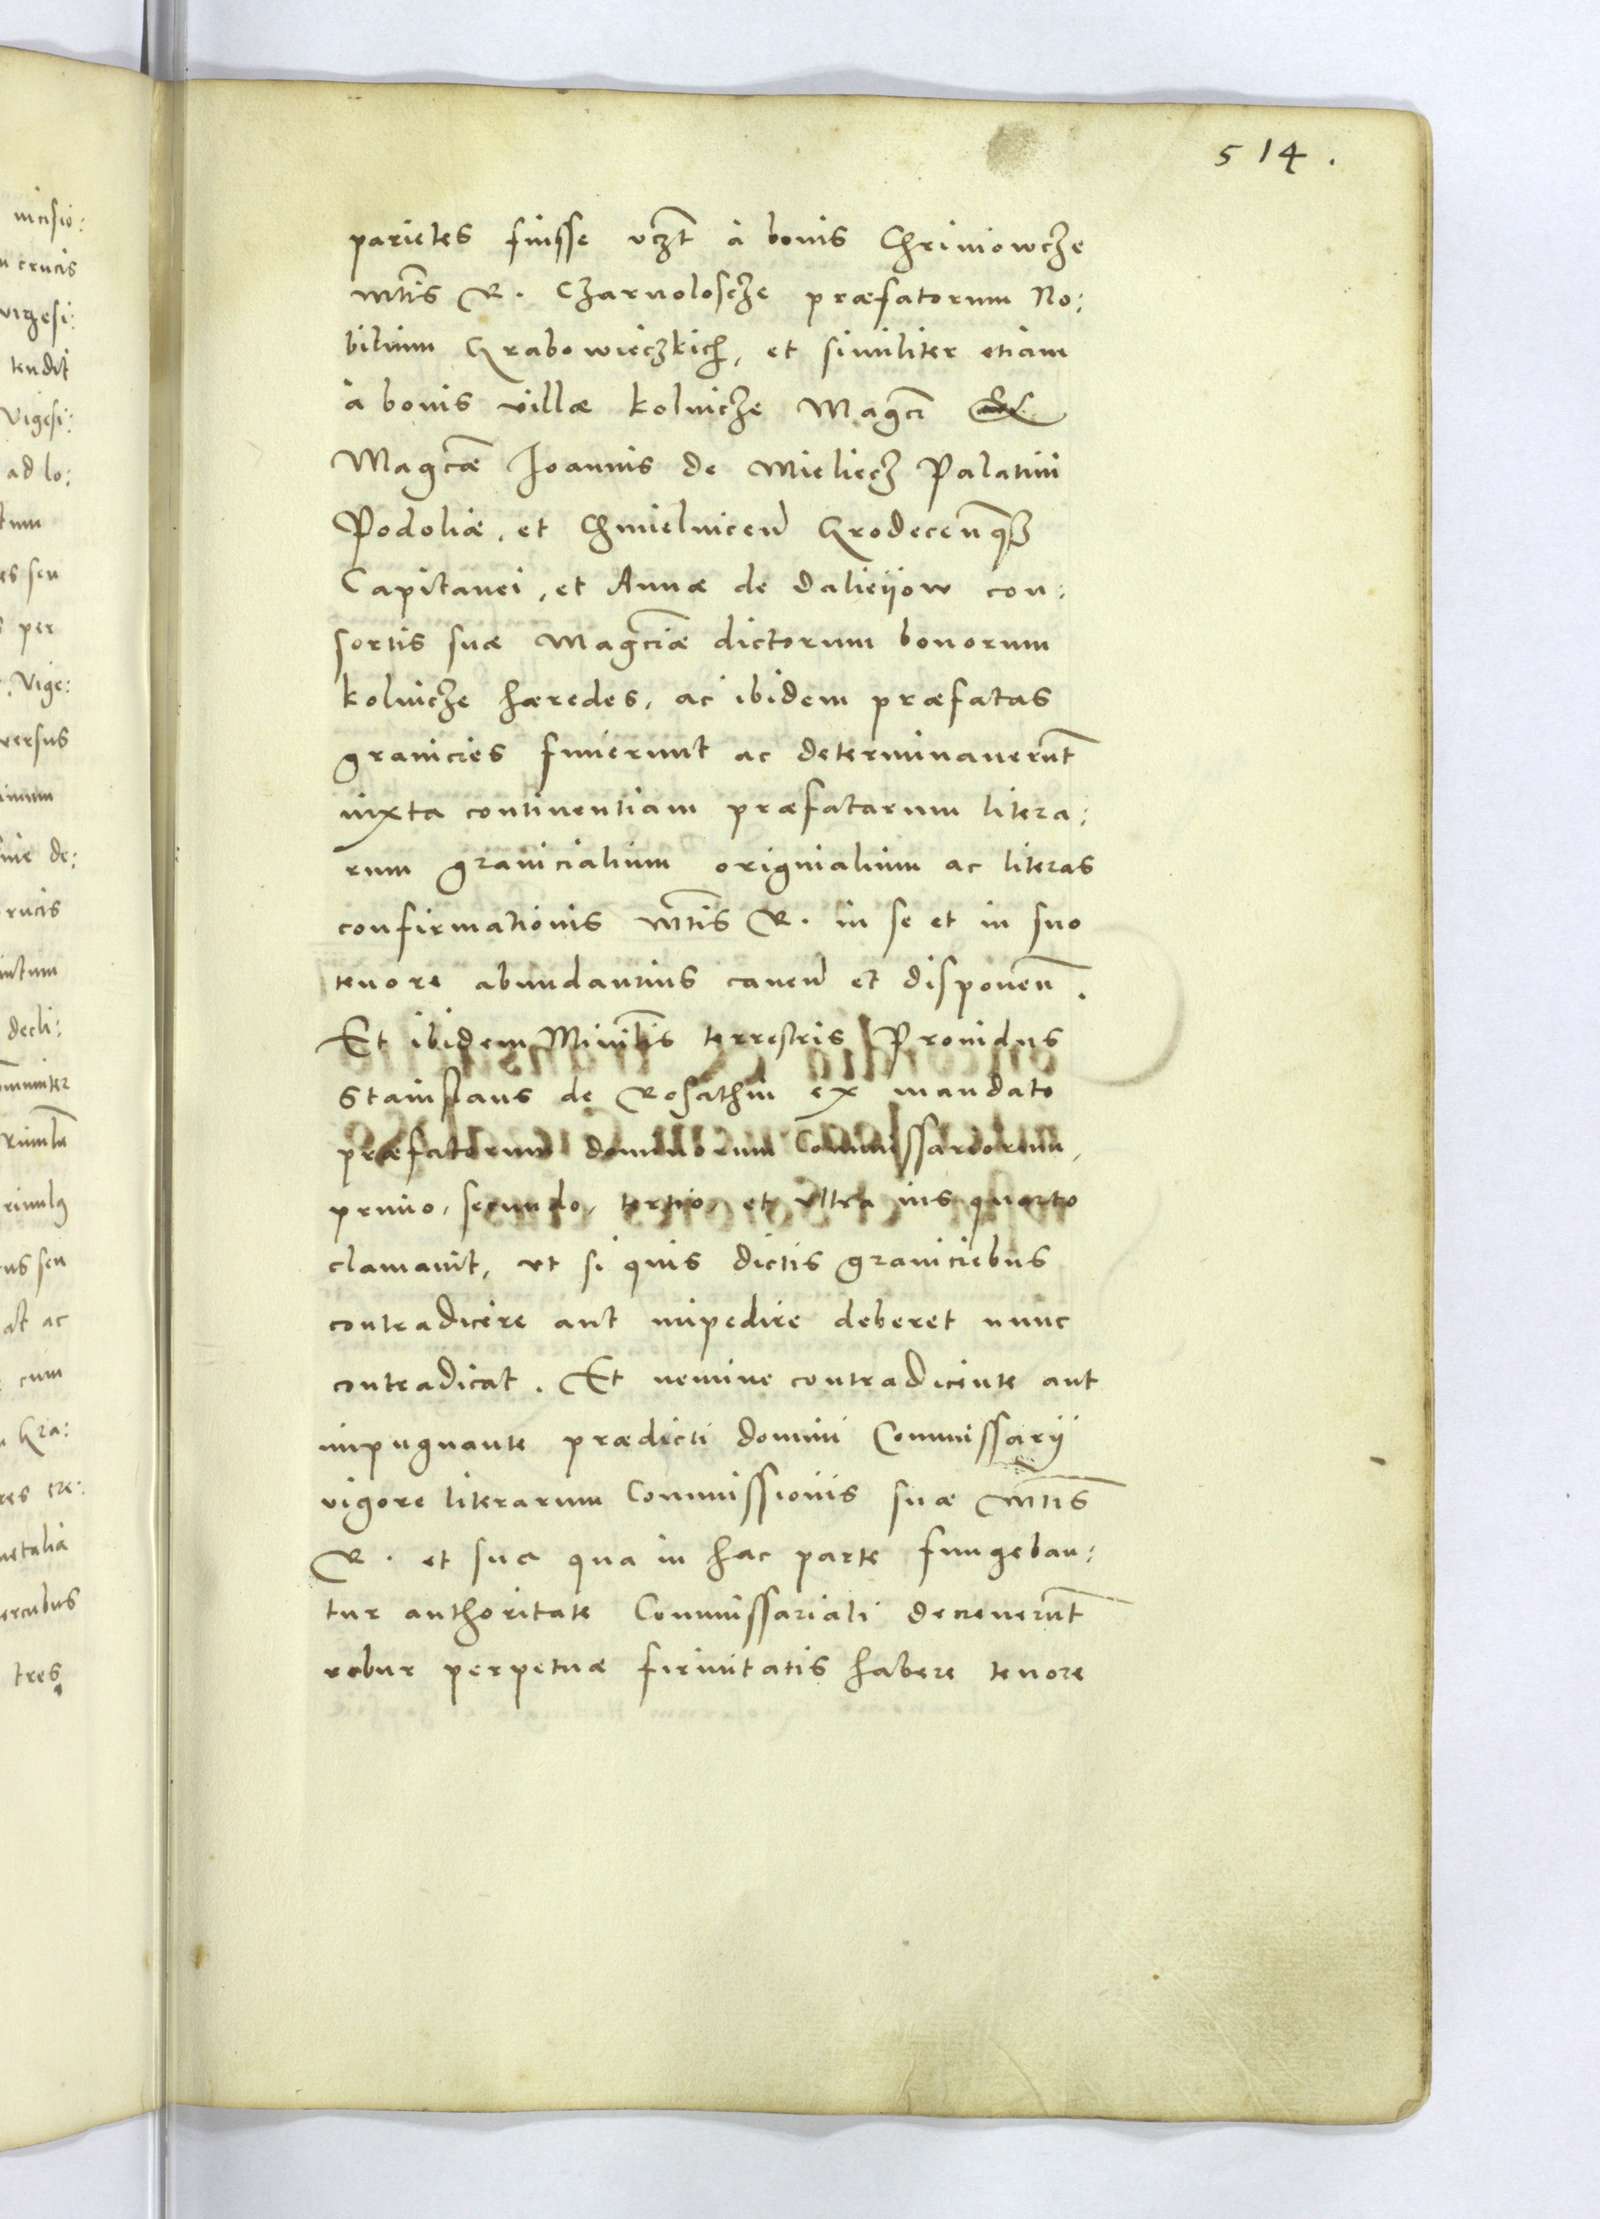 514.
parietes fuisse vczt à bonis Chriniowcze
Mtis R. Czarnoloscze præfatorum No:
bilium Grabowieczkich, et similiter etiam
à bonis villæ kolnicze Magci
Magcæ Joannis de Mieliecz Palatini
Podoliæ, et Chmielnicen Grodecenqs
Capitanei, et Annæ de Dalieijow con:
sortis suæ Magciæ dictorum bonorum
kolnicze hæredes, ac ibidem præfatas
granicies finierunt ac determinauerunt
iuxta continentiam præfatarum litera:
rum granicialium originalium ac literas
confirmationis Mtis R. in se et in suo
tenore abundantius canen et disponen.
Et ibidem Minitlis terrestris Prouidus
Stanislaus de Rosathin ex mandato
præfatorum dominorum Commissariorum,
primo, secundo, tertio, et vltra ius quarto
clamauit, vt si quis dictis graniciebus
contradicere aut impedire deberet nunc
contradicat. Et nemine contradicente aut
impugnante prædicti domini Commissarij
vigore literarum Commissionis suæ Mtis
R. et sua qua in hac parte fungeban:
tur authoritate Commissariali decreuerunt
robur perpetuæ firmitatis habere tenore